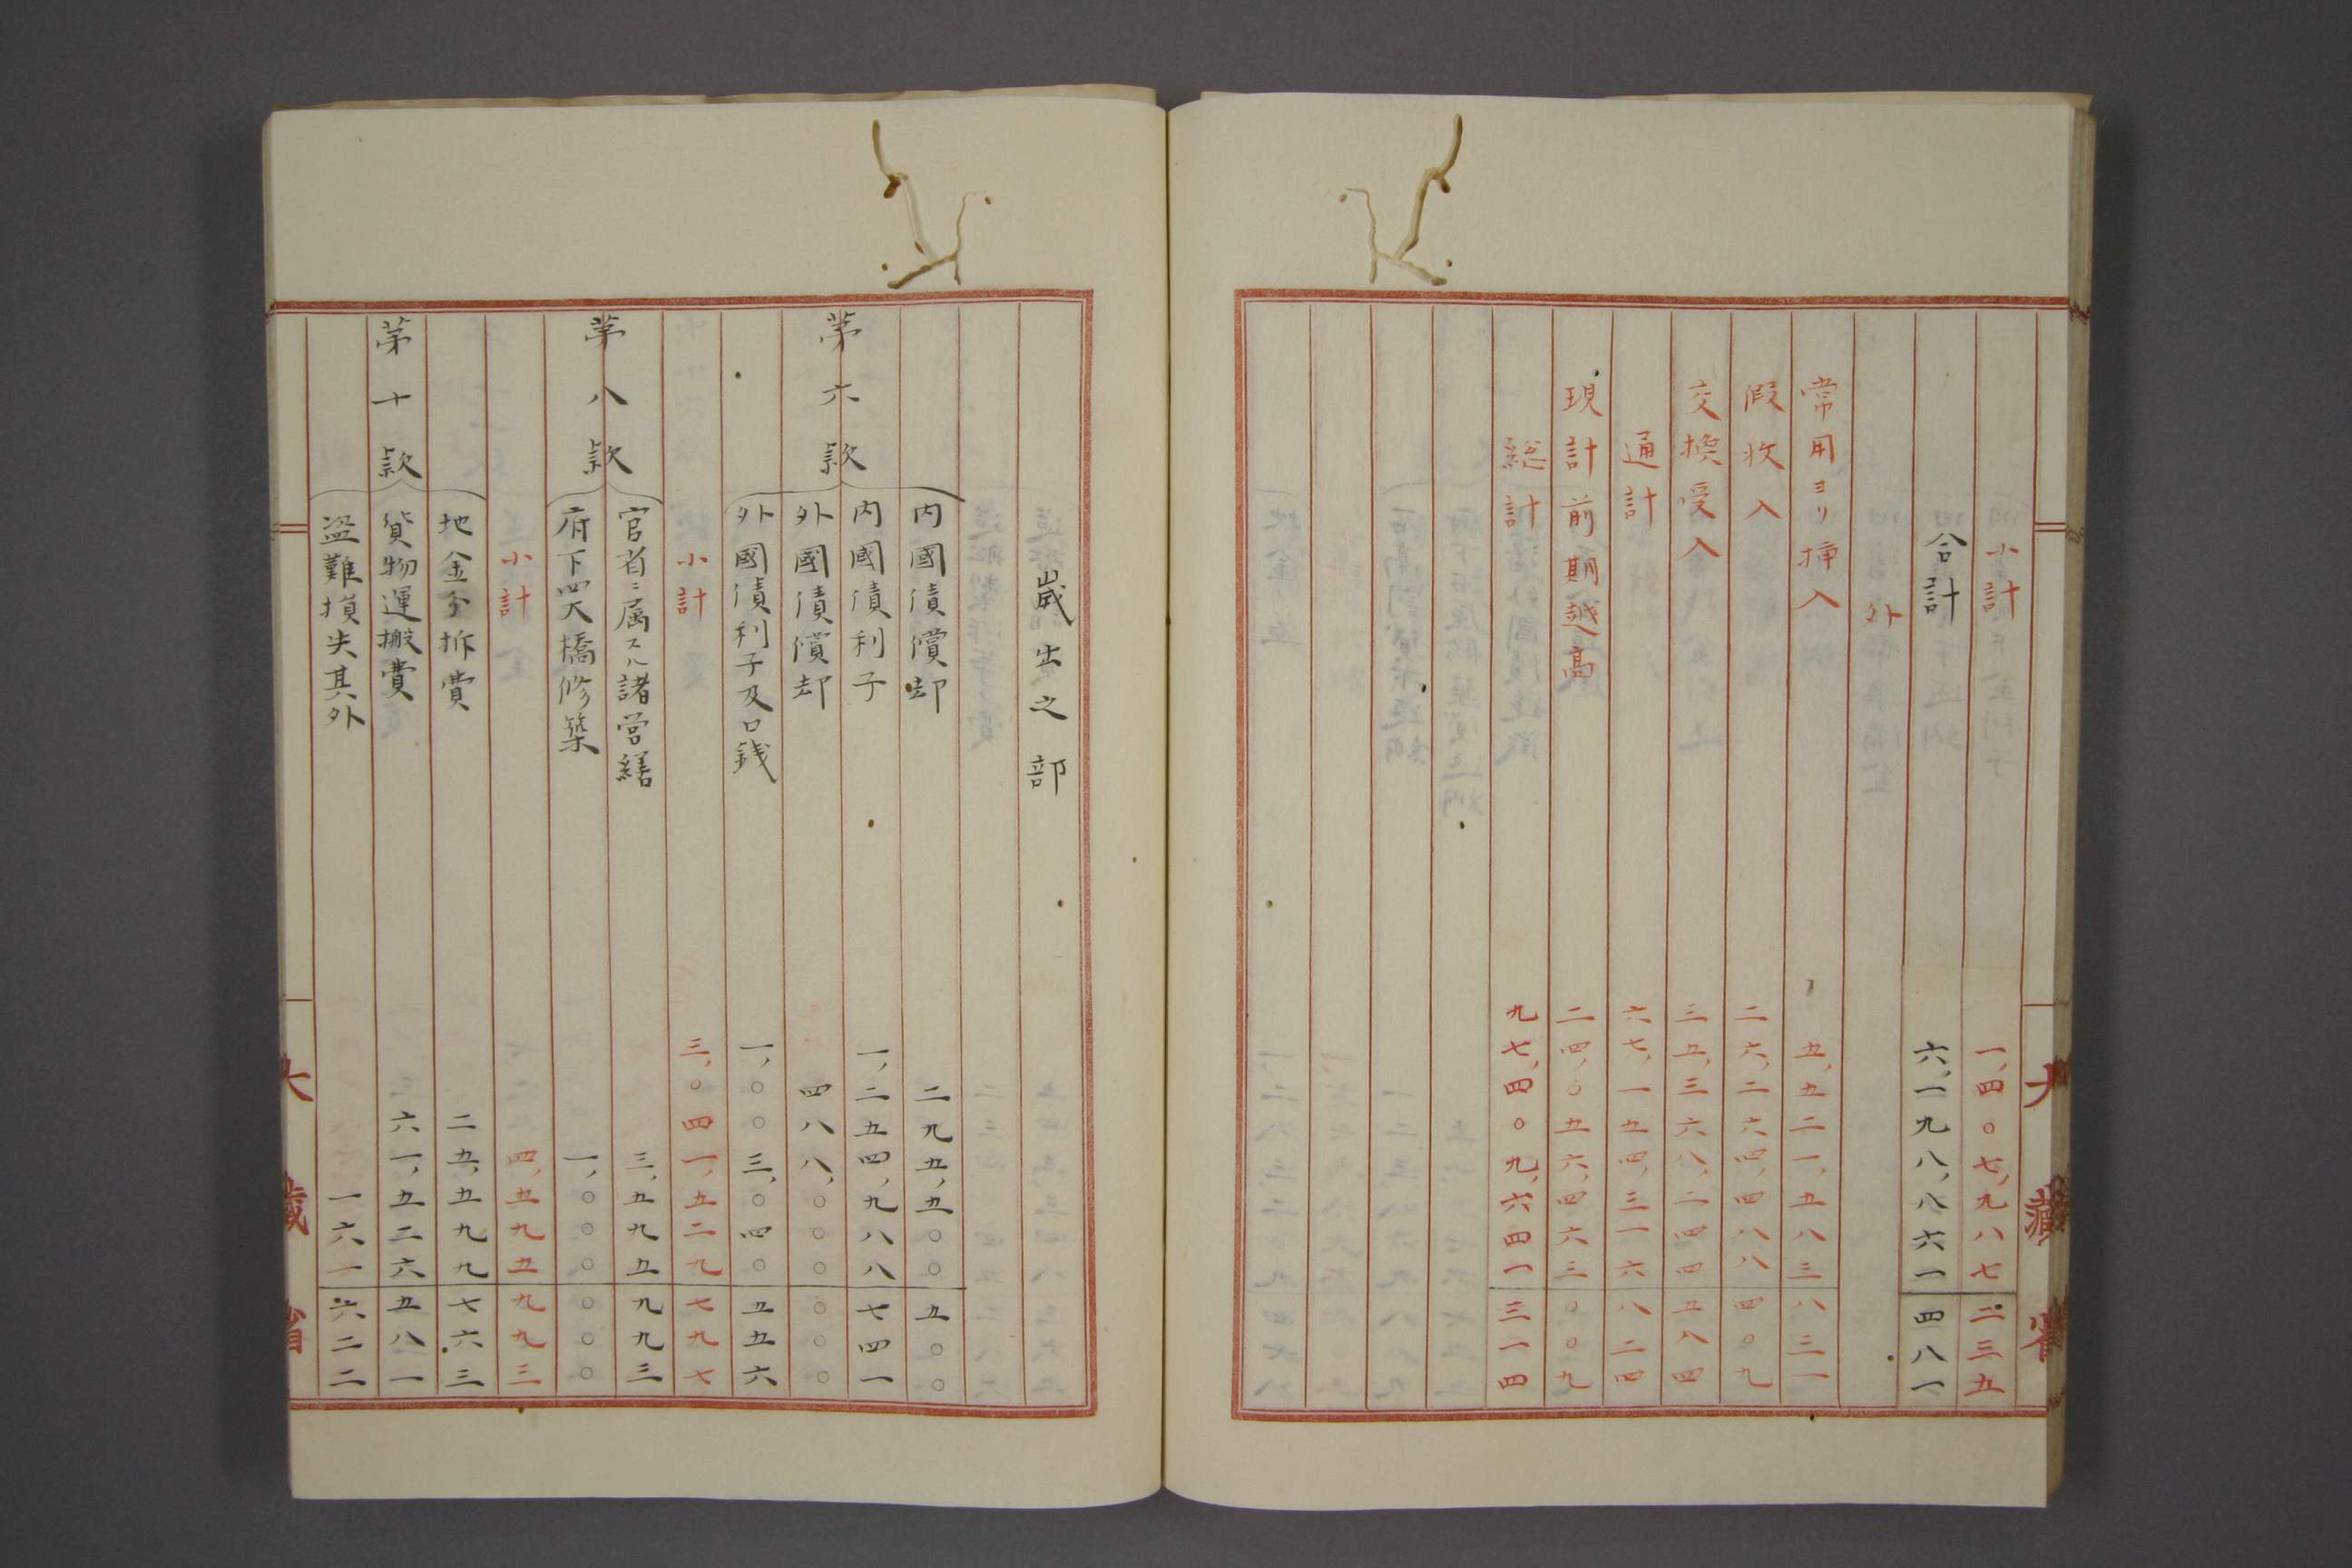 小計 一,四〇七,九八七 二三五
合計 六,一九八,八六一 四八一
外
常用ヨリ挿入 五,五二一,五八三 八三一
假收入 二六,二六四,四八八 四〇九
交換受入 三五,三六八,二四四 五八四
通計 六七,一五四,三一六 八二四
現計前期越高 二四,〇五六,四六三 〇〇九
総計 九七,四〇九,六四一 三一四
大藏省
歳出之部
第六款
内國債償却 二九五,五〇〇 五〇〇
内國債利子 一,二五四,九八八 七四一
外國債償却 四八八,〇〇〇 〇〇〇
外國債利子及口銭 一,〇〇三,〇四〇 五五六
小計 三,〇四一,五二九 七九七
第八款
官省ニ属スル諸営繕 三,五九五 九九三
府下四大橋修築 一,〇〇〇 〇〇〇
小計 四,五九五 九九三
第十款
地金分拆費 二五,五九九 七六三
貨物運搬費 六一,五三六 五八一
盗難損失其外 一六一 六二二
大藏省